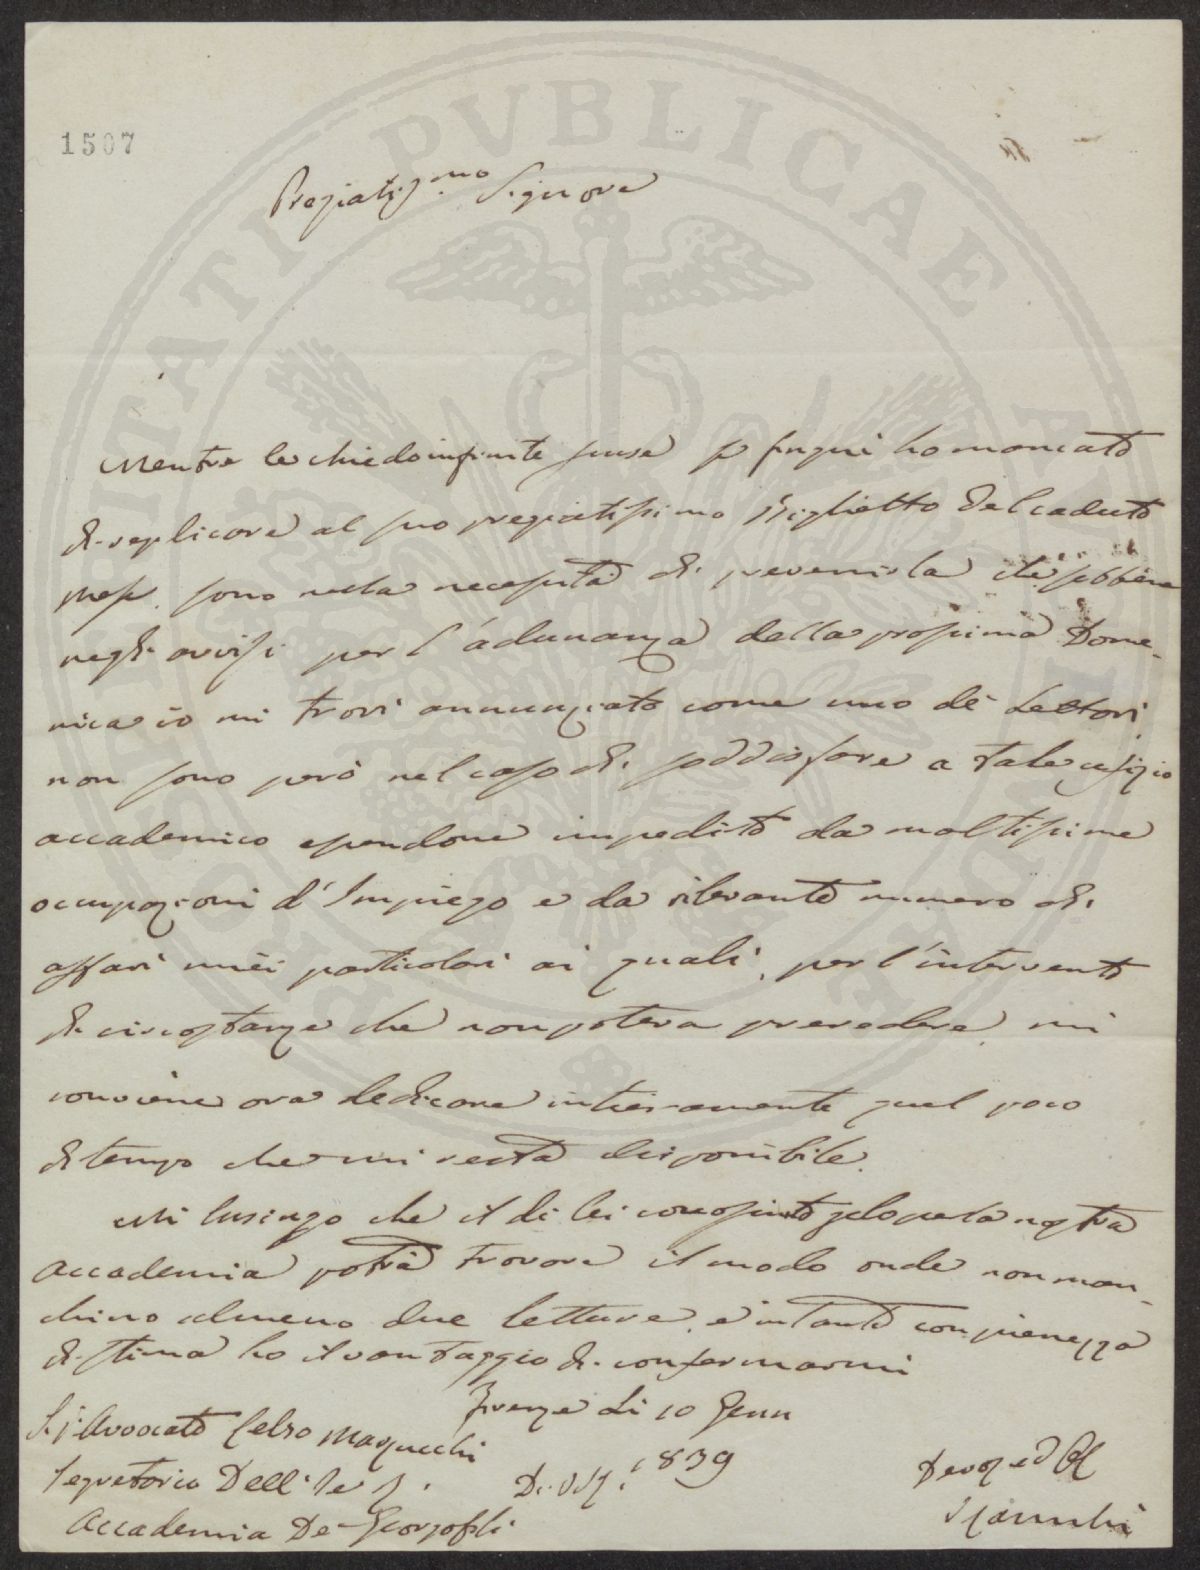 PROSPERITATI PVBLICAE AVGENDAE
1507
Pregiatiss.mo Signore
Mentre le chiedo infinite scuse p finqui ho mancato
di replicare al suo pregiatissimo Biglietto del caduto
mese. sono nella necessità di prevenirla che sebbene
negli avvisi per l'adunanza della prossima Dome-
nica io mi trovi annunziato come uno de Lettori
non sono però nel caso di soddisfare a tale ufizio
accademico essendone impedito da moltissime
occupazioni d'Impiego e da rilevante numero di
affari miei particolari ai quali, per l'intervento
di circostanze che non poteva prevedere, mi
conviene ora dedicare intieramente quel poco
di tempo che mi resta disponibile.
Mi lusingo che il di lei conosciuto zelo per la nostra
Accademia potrà trovare il modo onde non man-
chino almeno due letture, e intanto con pienezza
di stima ho il vantaggio di confermarmi
Firenze li 10 Genn
1839
S.r Avvocato Celso Marzucchi
Segretario Dell' I e R.
Accademia De Georgofili
Di VS
Devoz ed